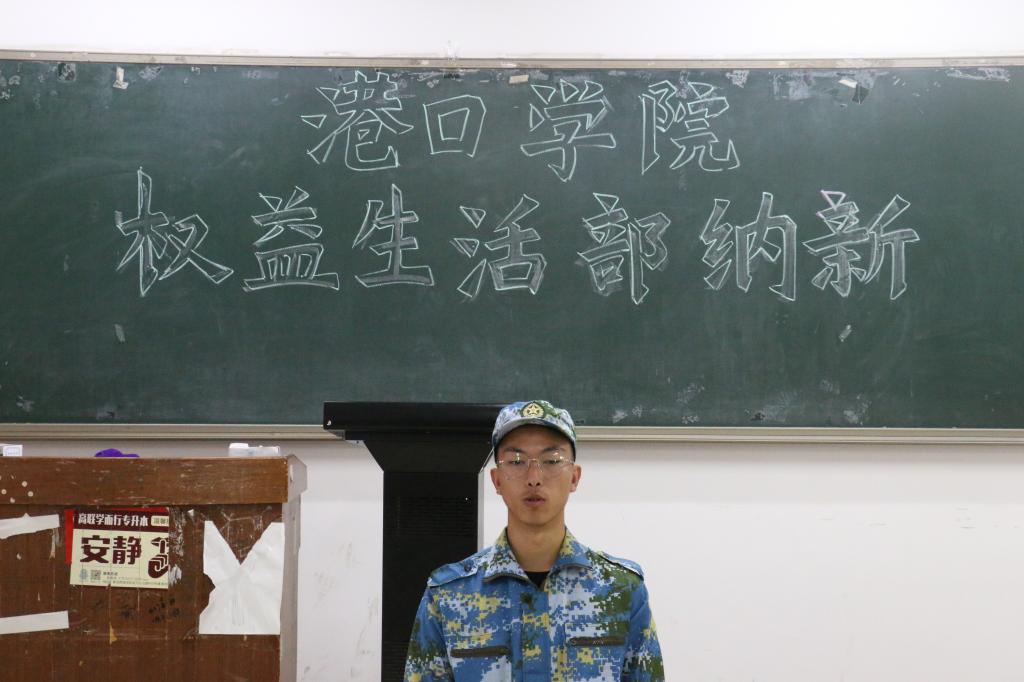 港口学院
权益生活部纳新
高联学而行专升本
安静